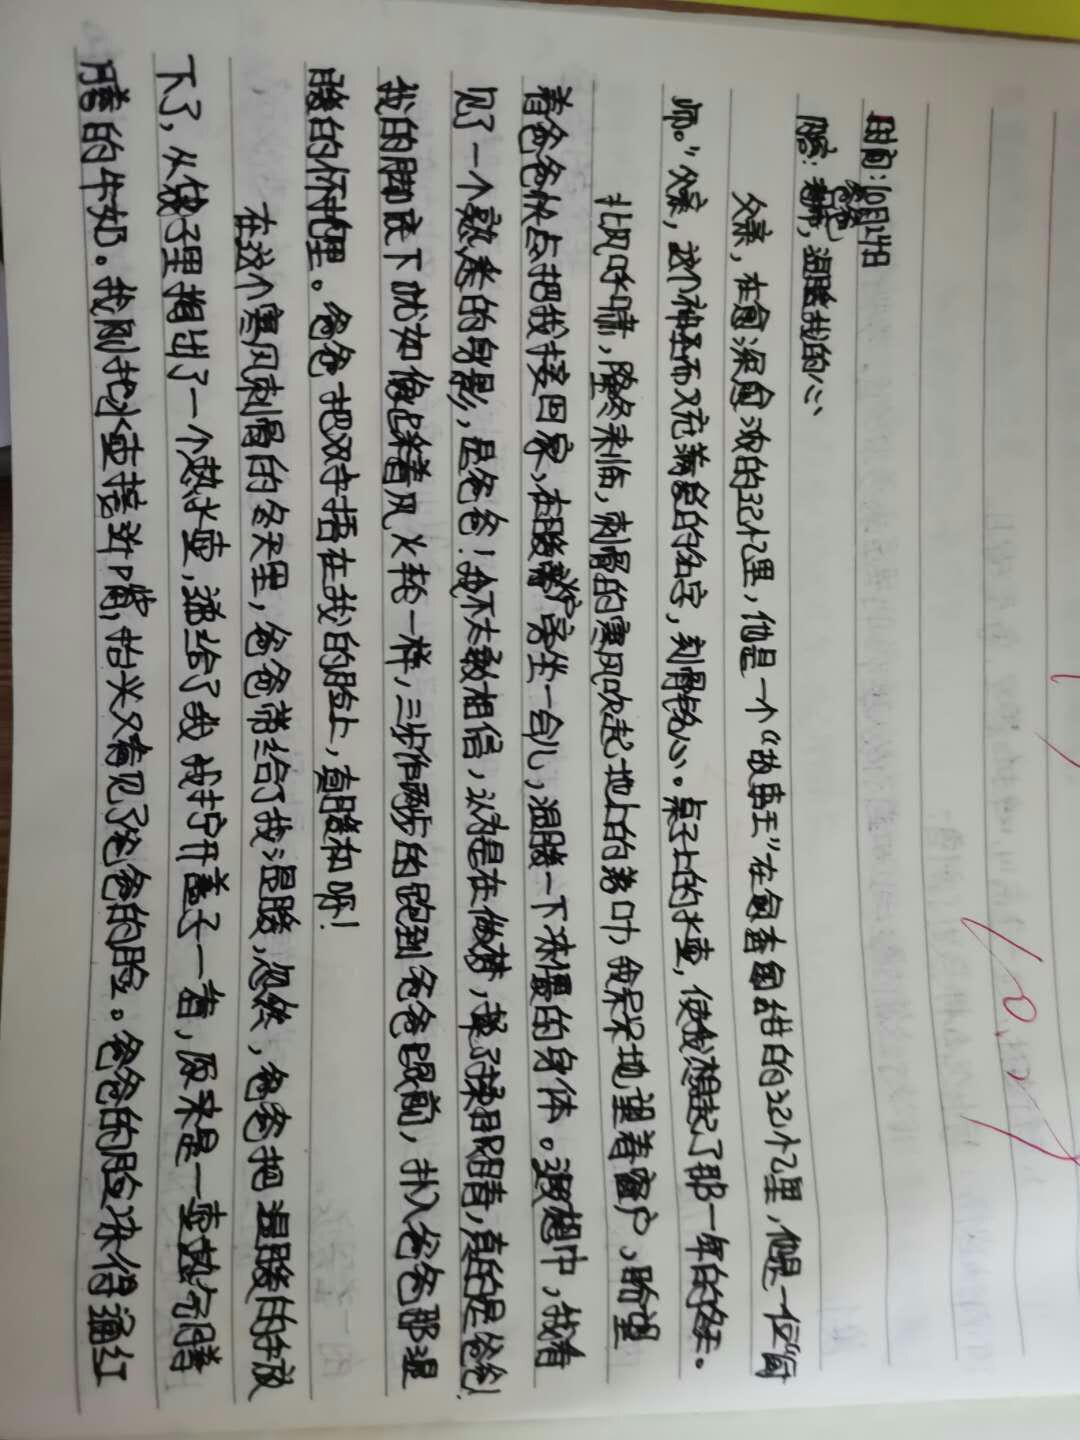 时间:10月24日
题: 爸爸, 温暖我的心
父亲, 在愈深愈浓的记忆里, 他是一个“故事王”在愈香愈甜的记忆里, 他是一位“厨
师。”父亲, 这个神圣而又充满爱的名字, 刻骨铭心。桌子上的水壶, 使我想起了那一年的冬天。
北风呼啸, 隆冬来临, 刺骨的寒风吹起地上的落叶, 我呆呆地望着窗户, 盼望
着爸爸快点把我接回家, 在暖暖坐一会儿, 温暖一下冻僵的身体。遐想中, 我看
见了一个熟悉的身影, 是爸爸! 我不太敢相信, 以为是在做梦, 揉了揉眼睛, 真的是爸爸!
我的脚底下犹如像踩着风火轮一样, 三步作两步的跑到爸爸跟前, 扑入爸爸那温
暖的怀抱里。爸爸把双手捂在我的脸上, 真暖和呀!
在这个寒风刺骨的冬天里, 爸爸带给了我温暖, 忽然, 爸爸把温暖的手放
下了, 从袋子里掏出了一个热水壶, 递给了我 我拧开盖子一看, 原来是一壶热气腾
腾的牛奶。我刚把水壶接近口嘴, 抬头又看见了爸爸的脸。爸爸的脸冻得通红